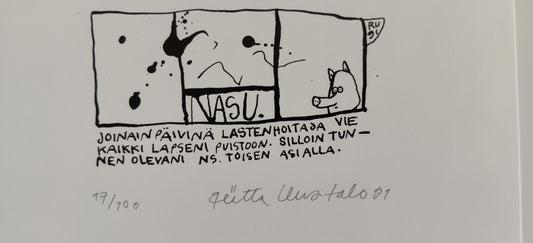 RU
91
NASU.
JOINAIN PÄIVINÄ LASTENHOITAJA VIE
KAIKKI LAPSENI PUISTOON. SILLOIN TUN–
NEN OLEVANI NS. TOISEN ASIALLA.
17/100 Riitta Uusitalo 91